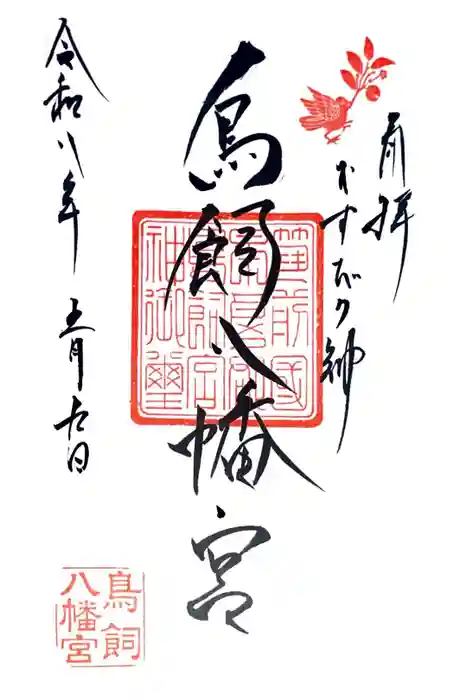 奉拝
むすびの神
鳥飼八幡宮
令和八年 五月
筑前國
鳥飼宮
神御璽
鳥飼
八幡宮